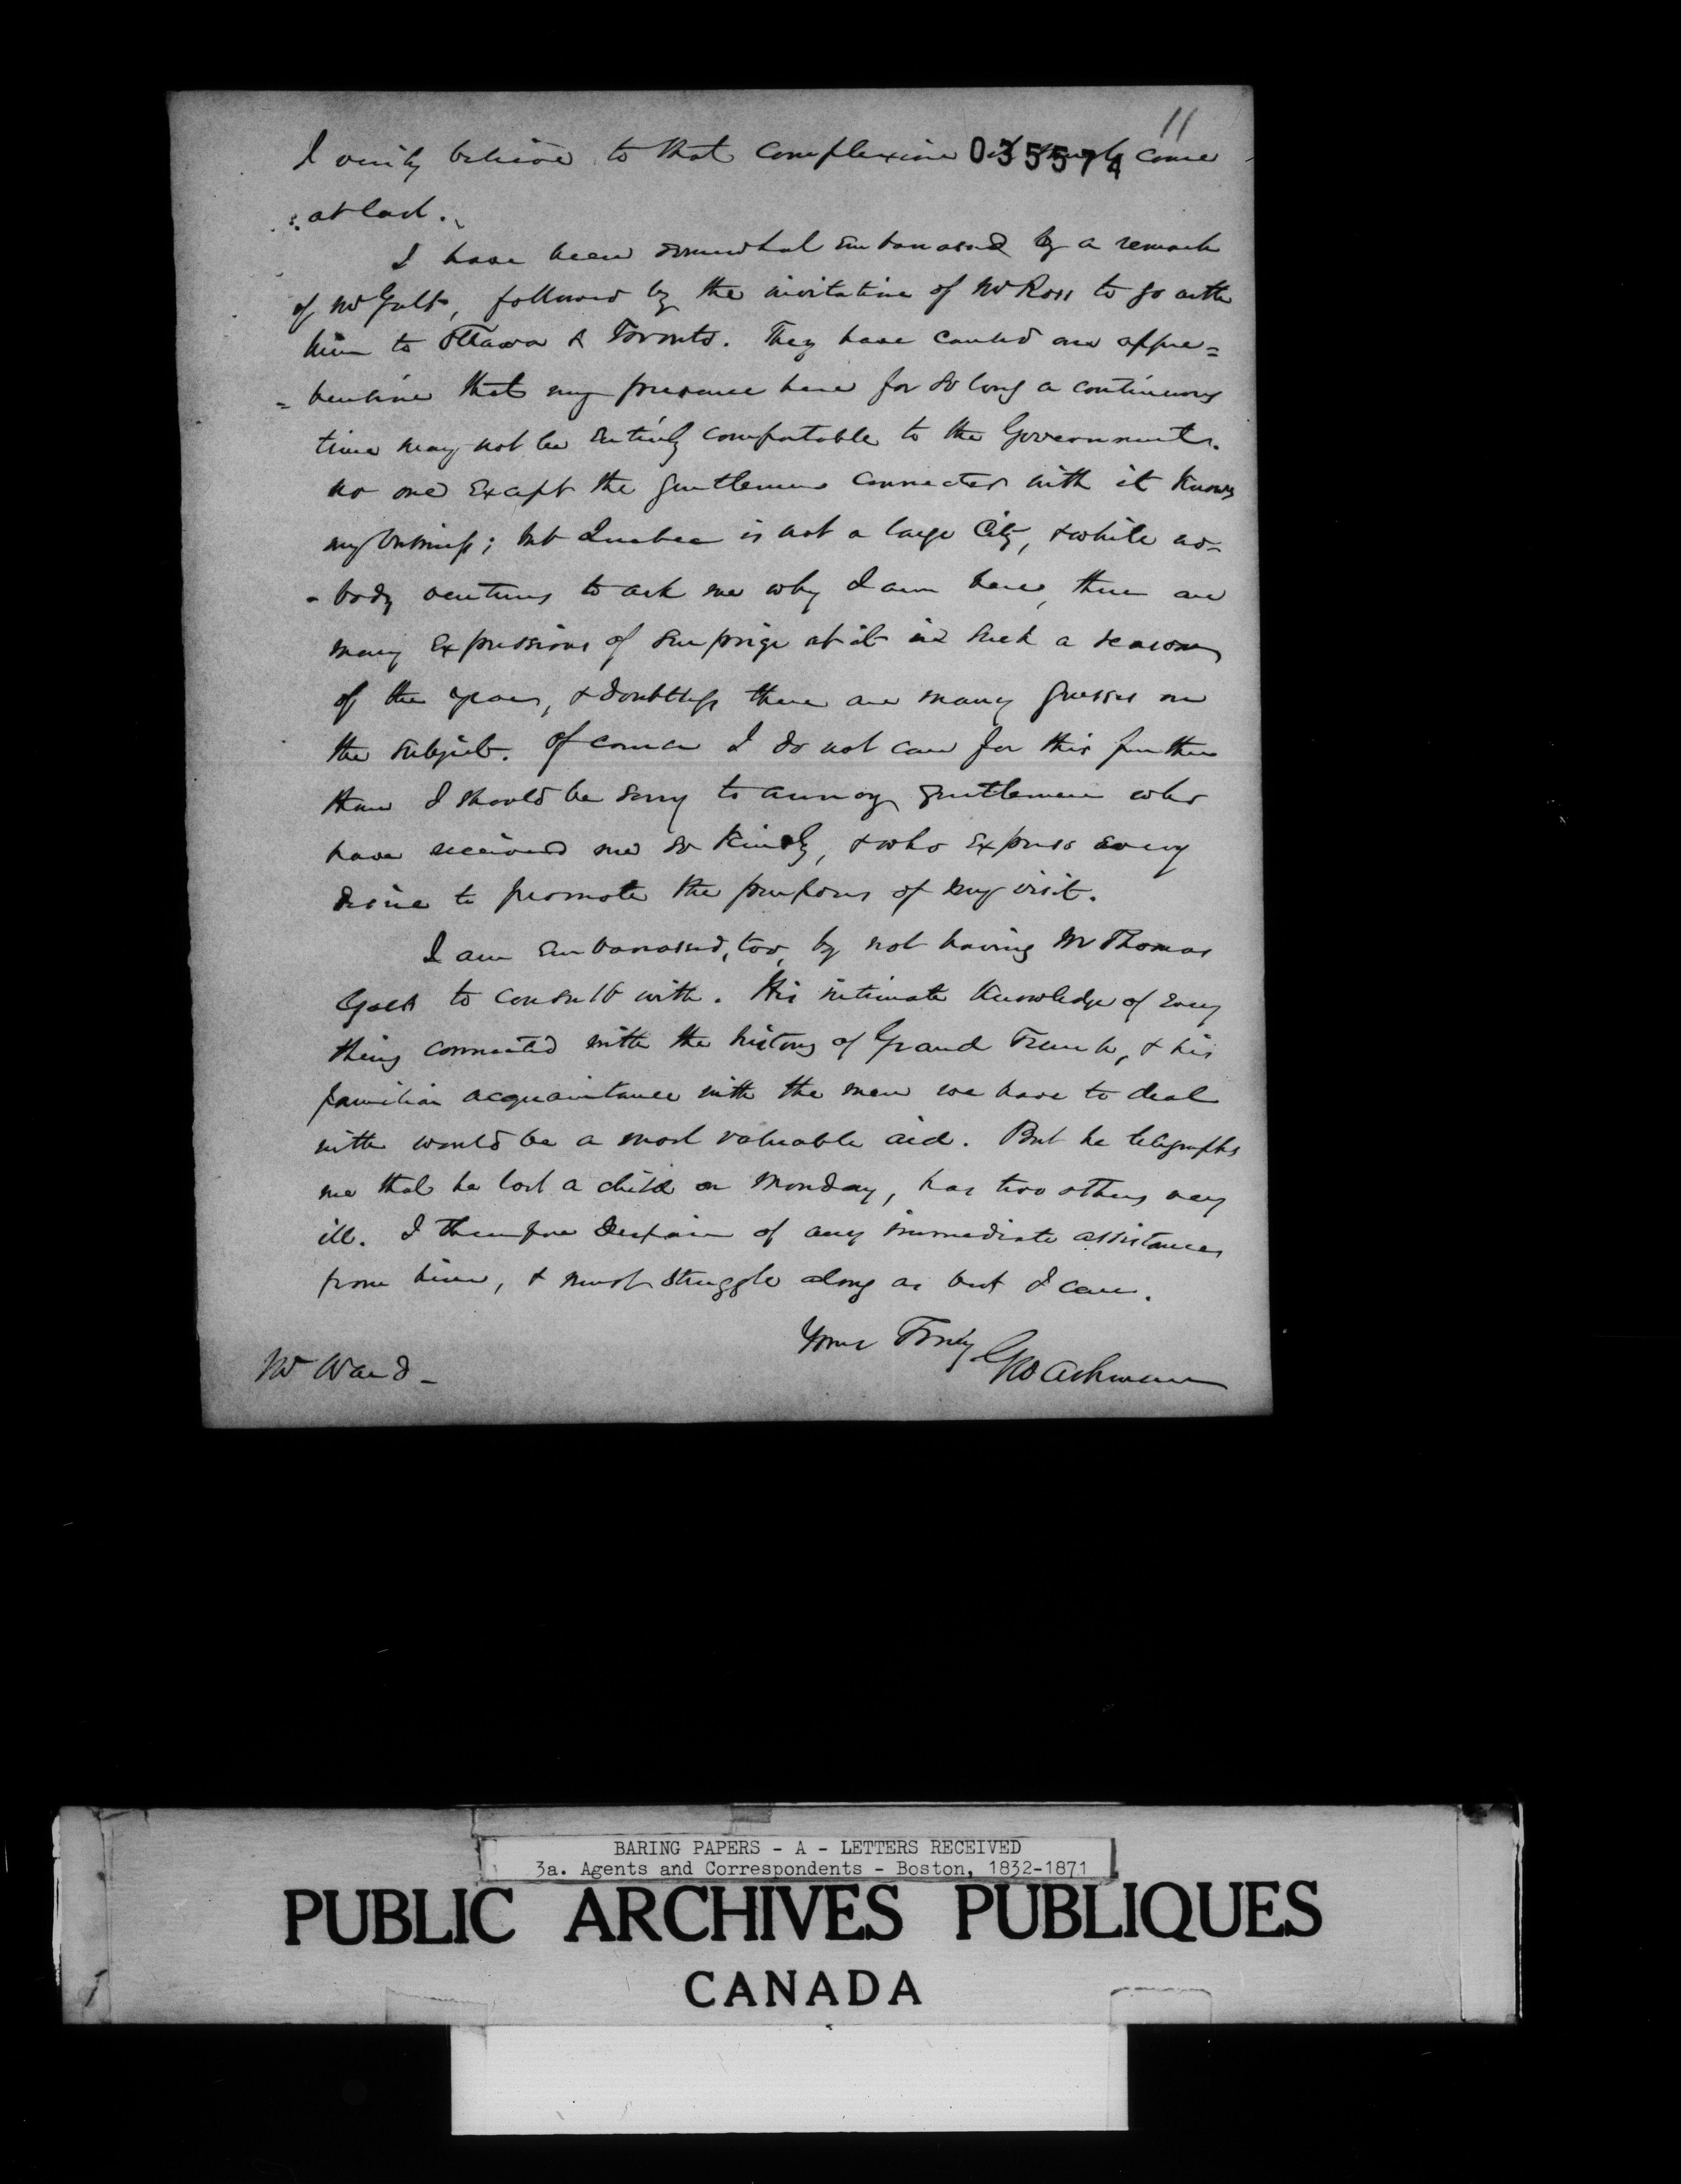 11
035574
I verily believe to that complexion it must come
at last.
I have been somewhat embarrassed by a remark
of Mr Galt, followed by the invitation of Mr Ross to go with
him to Ottawa & Toronto. They have caused an appre=
=hension that my presence here for so long a continuous
time may not be entirely comfortable to the Government.
No one except the gentlemen connected with it knows
my business; but Quebec is not a large City, & while no-
-body ventures to ask me why I am here, there are
many expressions of surprise at it in such a season
of the year, & doubtless there are many guesses on
the subject. Of course I do not care for this further
than I should be sorry to annoy gentlemen who
have received me so kindly, & who express every
desire to promote the purposes of my visit.
I am embarrassed, too, by not having Mr Thomas
Galt to consult with. His intimate knowledge of every
thing connected with the history of Grand Trunk, & his
familiar acquaintance with the men we have to deal
with would be a most valuable aid. But he telegraphs
me that he lost a child on Monday, has two others very
ill. I therefore despair of any immediate assistance
from him, & must struggle along as best I can.
Yours Truly
Geo Ashmun
Mr Ward -
BARING PAPERS - A - LETTERS RECEIVED
3a. Agents and Correspondents - Boston, 1832-1871
PUBLIC ARCHIVES PUBLIQUES
CANADA